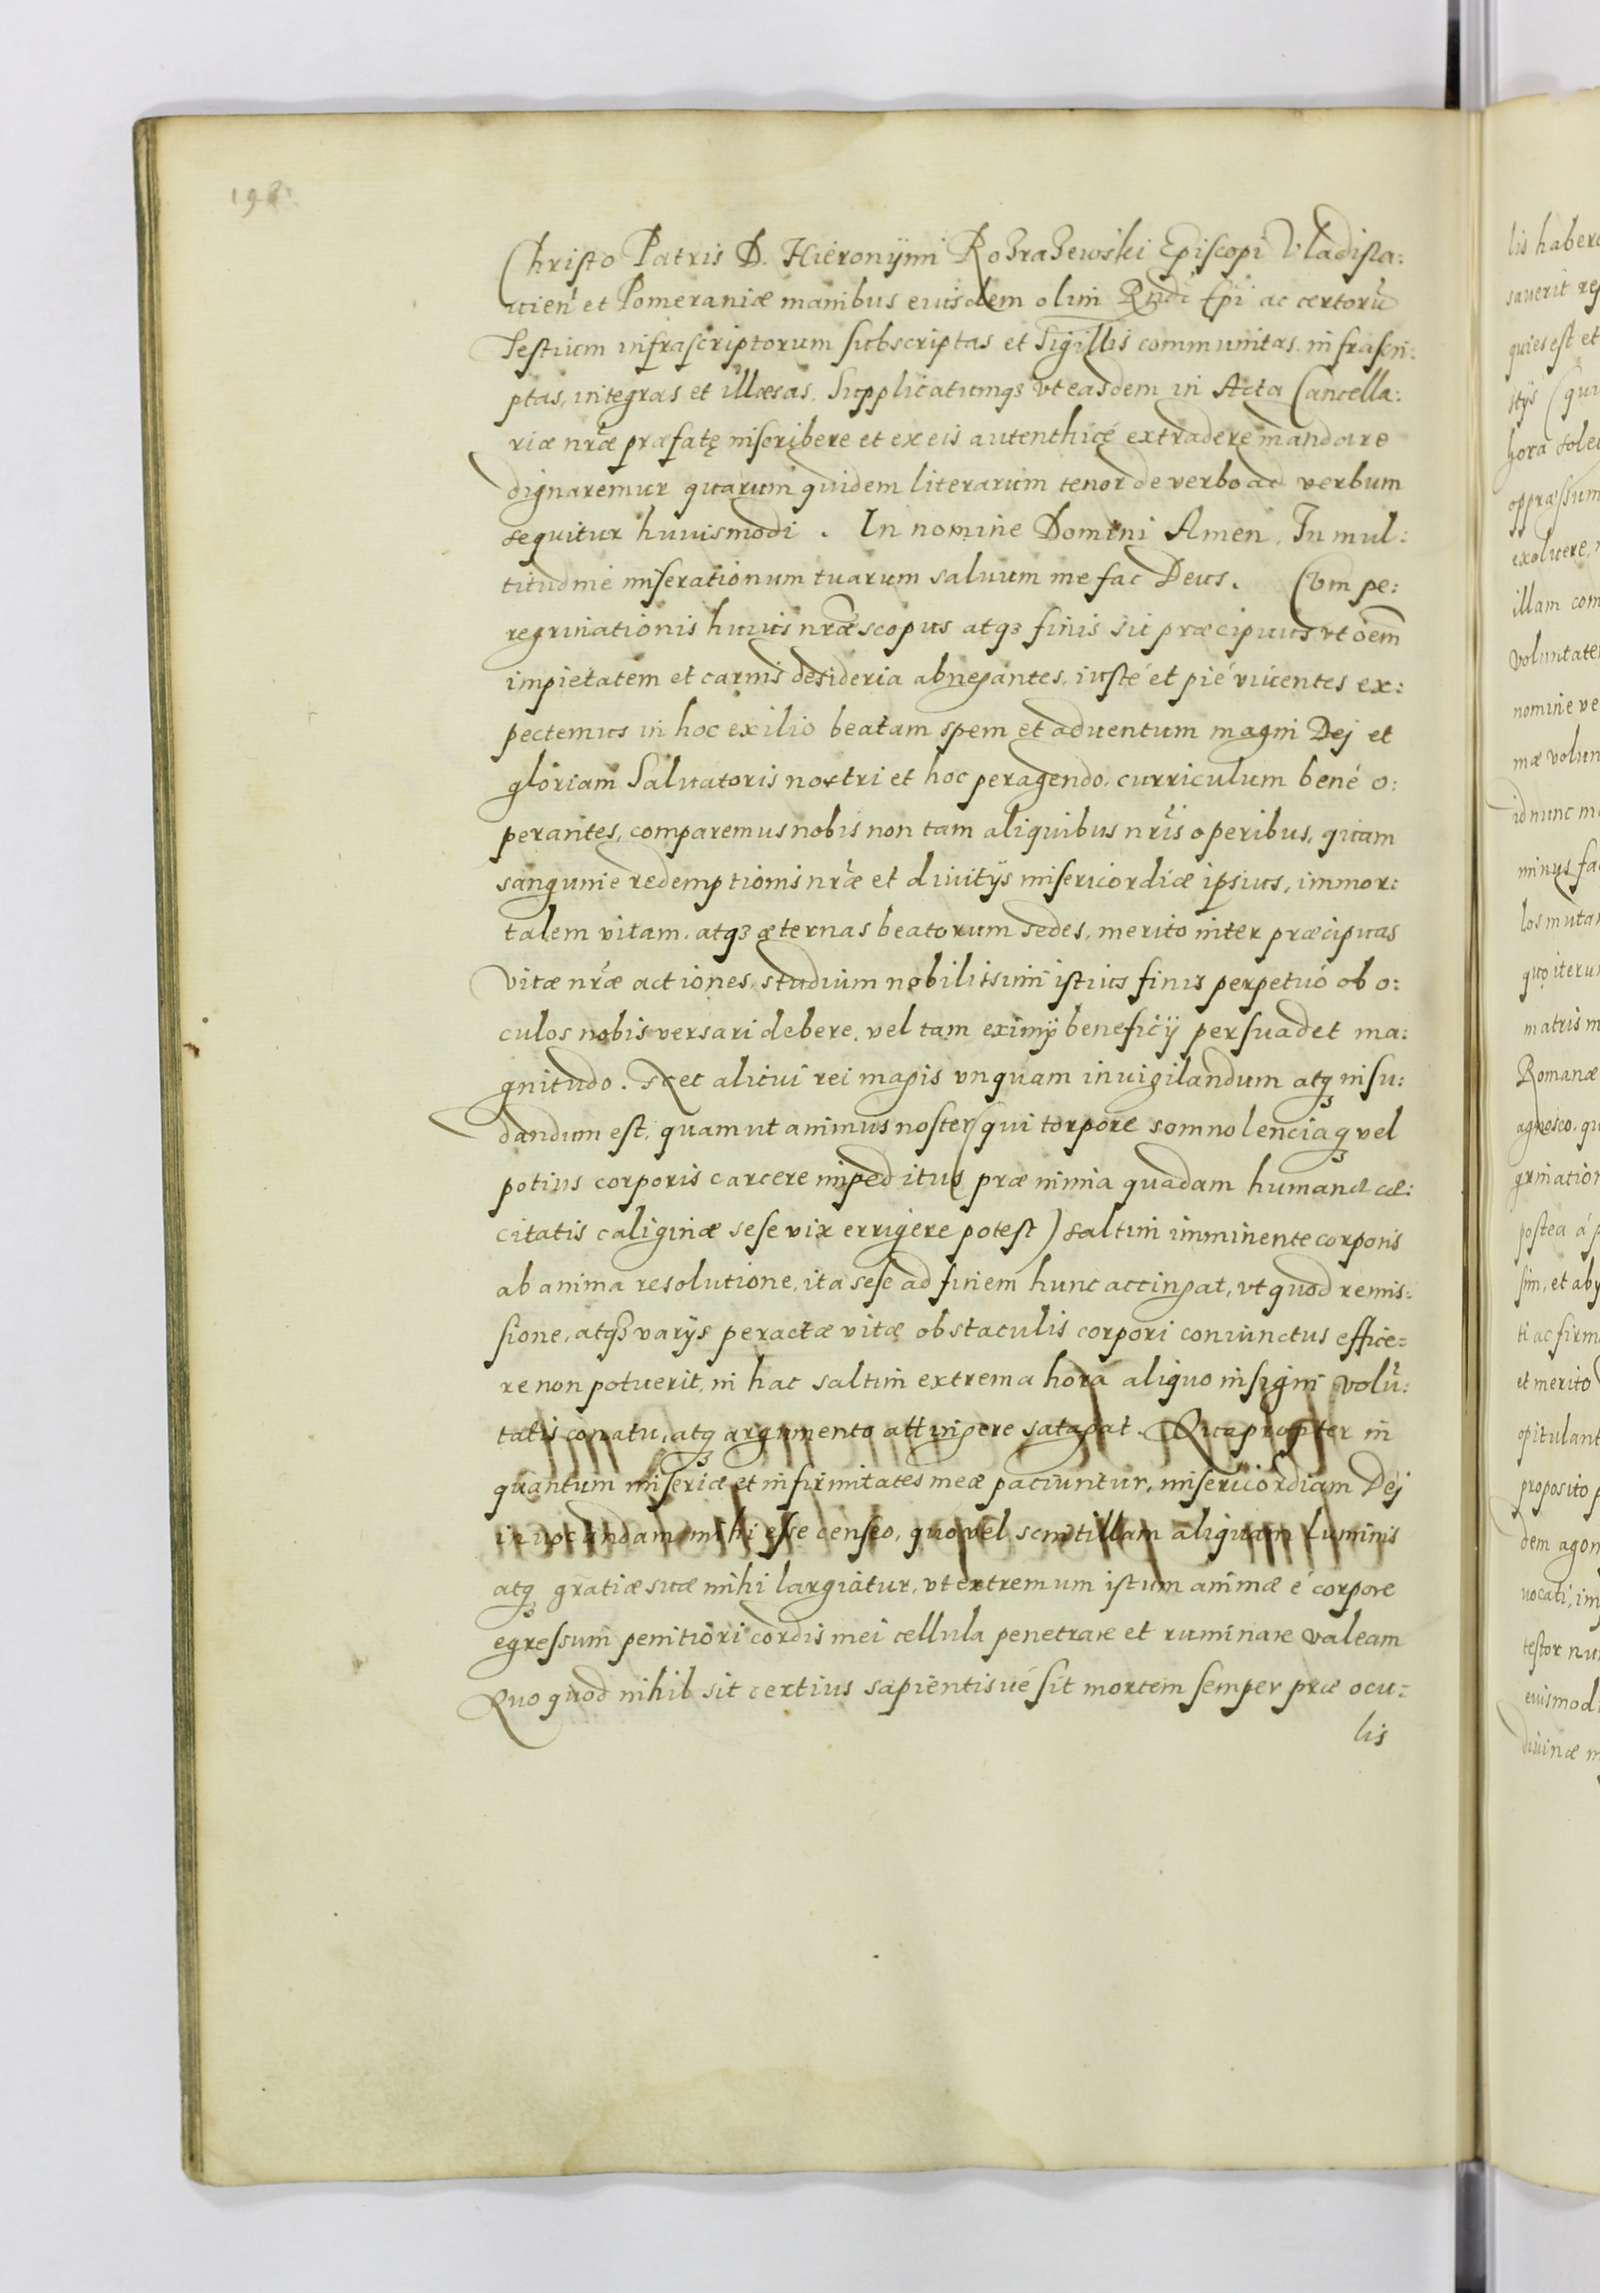 198.
Christo Patris D. Hieronÿmi Rozrazewski Episcopi Vladisla:
uien̄ et Pomeraniæ manibus eiusdem olim Rndi Epi ac certorū
Testium infrascriptorum subscriptas et Sigillis communitas. infrascri:
ptas, integras et illæsas. Supplicatumqз vt easdem in Acta Cancella:
riæ nræ præfatę inscribere et ex eis autenthicé extradere mandare
dignaremur quarum quidem literarum tenor de verbo ad verbum
sequitur huiusmodi. In nomine Domini Amen. In mul:
titudine miserationum tuarum saluum me fac Deus. Cum pe:
regrinationis huius nræ scopus atqз finis sit præcipuus vt oem
impietatem et carnis desideria abnegantes, iusté et pié viuentes ex:
pectemus in hoc exilio beatam spem et aduentum magni Dej et
gloriam Saluatoris nostri et hoc peragendo curriculum bené o:
perantes, comparemus nobis non tam aliquibus nris operibus, quam
sanguine redemptionis nræ et diuitÿs misericordiæ ipsius, immor:
talem vitam, atqз æternas beatorum sedes, merito inter præcipuas
vitæ nræ actiones, studium nobilissimi istius finis perpetuó ob o:
culos nobis versari debere, vel tam eximÿ beneficÿ persuadet ma:
gnitudo. Nec alicui rei magis vnquam inuigilandum atqз insu:
dandum est, quam ut animus noster (qui torpore somnolenciaqз vel
potius corporis carcere impeditus præ nimia quadam humanæ cæ:
citatis caliginæ sese vix errigere potest) saltim imminente corporis
ab anima resolutione, ita sese ad finem hunc accingat, vt quod remis:
sione, atqз varÿs peractæ vitæ obstaculis corpori coniunctus effice:
re non potuerit, in hac saltim extrema hora aliquo insigni volū:
tatis conatu, atqз argumento attingere satagat. Quapropter in
quantum miseriæ et infirmitates meæ paciuntur, misericordiam Dej
inuocandam mihi esse censeo, quo vel scintillam aliquam luminis
atqз gratiæ suæ mihi largiatur, vt extremum istum animæ é corpore
egressum penitiori cordis mei cellula penetrare et ruminare valeam
Quo quod nihil sit certius sapientisué sit mortem semper præ ocu:
lis